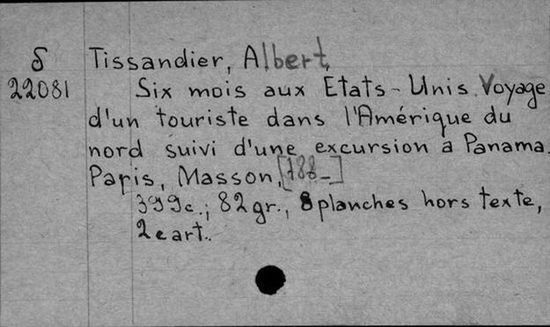 S Tissandier, Albert,
22081 Six mois aux Etats-Unis. Voyage
d'un touriste dans l'Amérique du
nord suivi d'une excursion à Panama.
Paris, Masson, [188-]
399c.; 82gr., 8 planches hors texte,
2 cart.